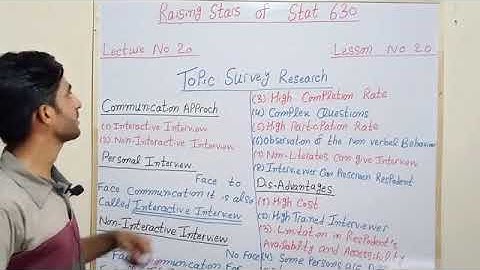 Raising Stars of Stat 630
Lecture No 20
Lesson No 20
Topic Survey Research
Communication Approch
(1) Interactive Interview
(2) Non-Interactive Interview
Personal Interview
Face to
Face Communication it is also
Called Interactive Interview
Non-Interactive Interview
No Face
Face Communication For
(3) High Completion Rate
(4) Complex Questions
(5) High Participation Rate
(6) Observation of the Non verbal Behavior
(7) Non-Literates Can give Interview
(8) Interviewer Can Prescreen Respodent
Dis-Advantages
(1) High Cost
(2) High Trained Interviewer
(3) Limitation in Respodent's
Availability and Accessibility
(4) Some Persons are